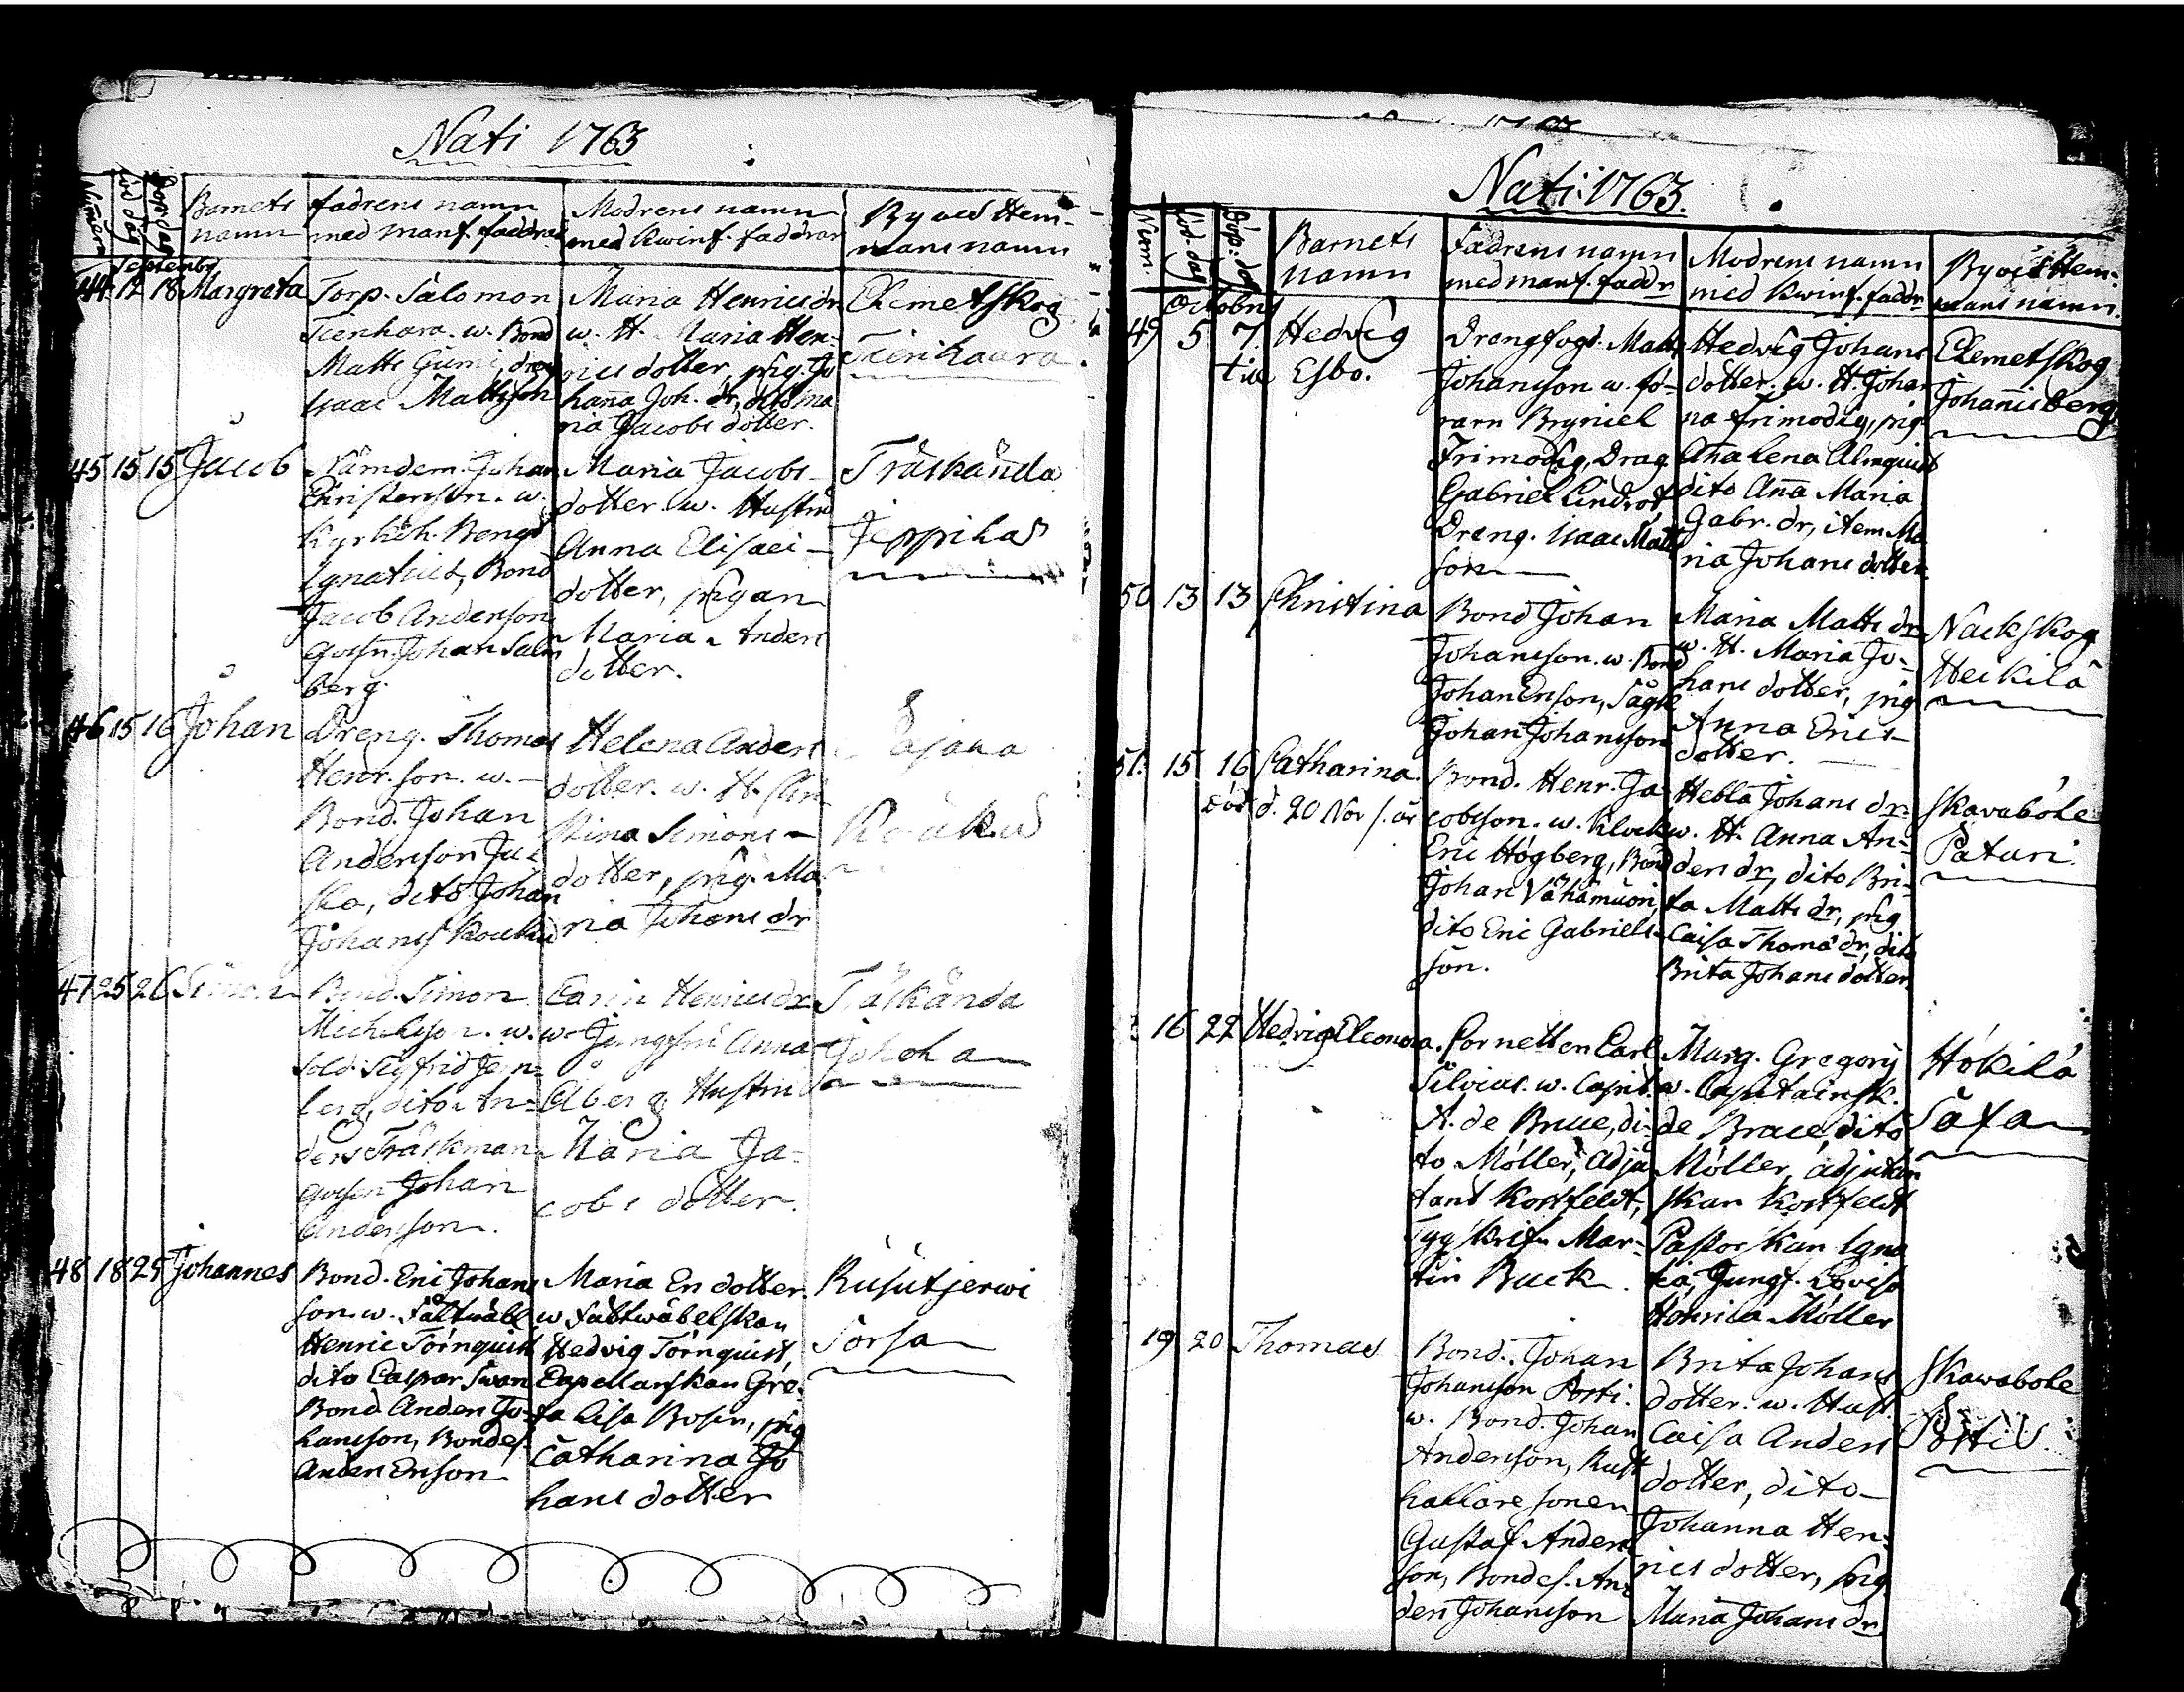 Nati 1763
Numorn
föd dag
Döpe dag
Barnets namn
fadrens namn med manf. faddrar
Modrens namn med Kwinf. faddrar
By och Hemmans namn
Septembr
44. 12 18 Margreta
Torp. Salomon
Tienhara. w. Bond
Matts Gumi, dreng
Isaac Mattsson
Maria Henrics dr
w. H. Maria Hen-
rics dotter, pig. Jo
hana Joh. dr, dito ma
ria Jacobs dotter.
Clemetskog
Tienhaara
45 15 15 Jacob
Nämdem. Johan
Christerson. w.
Kyrkoh. Bengt
Ignatius, Bond
Jacob Anderson
gossn. Johan Salm
berg.
Maria Jacobs
dotter. w. Hustru
Anna Elisaei
dotter, pigan
Maria Anders
dotter.
Träskända
Jippilas
46 15 16 Johan
Dreng. Thomas
Henr. son. w.
Bond. Johan
Anderson Ju-
ska, dito Johan
Johans Koukus
Helena Anders
dotter. w. H. Chri
stina Simons
dotter, pig. Ma
ria Johans dr
Pajana
Koukus
47 25 26 Simon
Bond. Simon
Michelsson. w.
Sold. Sigfrid Jern-
berg, dito An-
ders Träskman
gossen Johan
Anderson.
Carin Henrics dr
w. Jungfru Anna
Åberg Hustru
Maria Ja-
cobs dotter.
Träskända
Johola
48 18 25 Johannes
Bond. Eric Johans
son. w. Fältwäbl
Henric Törnquist
dito Caspar Swan
Bond Anders Jo-
hansson, Bondes.
Anders Erson
Maria Er dotter.
w Fältwäbelskan
Hedvig Törnquist,
Capellanskan Gre-
ta Lisa Bosin, pig
Catharina Jo
hans dotter
Rusutjerwi
Sorsa
Nati: 1763.
Num.
föd. dag
Döp: dag
Barnets namn
Fadrens namn med manf. faddr
Modrens namn med Kwinf. faddr
By och Hemmans namn.
Octobris
49 5 7. Hedvig
Esbo.
Drengfogd. Matts
Johansson w. fö-
rarn Bryniel
Frimodig, Drag
Gabriel Lindrot
Dreng. Isaac Matts
son
Hedvig Johans
dotter. w. H. Johan
na frimodig, pig
Aña Lena Almquist
dito Aña Maria
Gabr. dr, item Ma
ria Johans dotter.
Clemetskog
Johannisberg
50 13 13 Christina
Bond Johan
Johansson. w. Bond
Johan Erson, Sågk
Johan Johansson
Maria Matts dr
w. H. Maria Jo-
hans dotter, pig
Anna Erics
dotter.
Näckskog
Heikilä
51. 15 16 Catharina.
död d. 20 Nov s. år
Bond. Henr. Ja
cobsson. w. Klock
Eric Högberg, Bond
Johan Vähämäori,
dito Eric Gabriels
son.
Hebla Johans dr.
w. H. Anna An-
ders dr, dito Bri-
ta Matts dr, pig
Caisa Thoma dr, dito
Brita Johans dotter
Skavaböle
Paturi.
16 22 Hedvig Eleonora.
Cornetten Carl
Silvius. w. Capit.
A. de Bruce, di-
to Möller, adju
tant Kortfeldt,
Tygskrifn Mar-
tin Buck
Marg. Gregorii
w. Capitainsk.
de Bruce, dito
Möller, adjutan
skan Kortfeldt
Pastorskan Igna
tia, Jungf. Lovisa
Henrica Möller
Hökilä
Saxa
19 20 Thomas
Bond. Johan
Johansson Posti.
w. Bond. Johan
Andersson, Rust
hallare sonen
Gustaf Anders
son, Bondes. An-
ders Johansson
Brita Johans
dotter. w. Hust.
Caisa Anders
dotter, dito
Johanna Hen-
rics dotter, pig
Maria Johans dr
Skawabole
Postis.